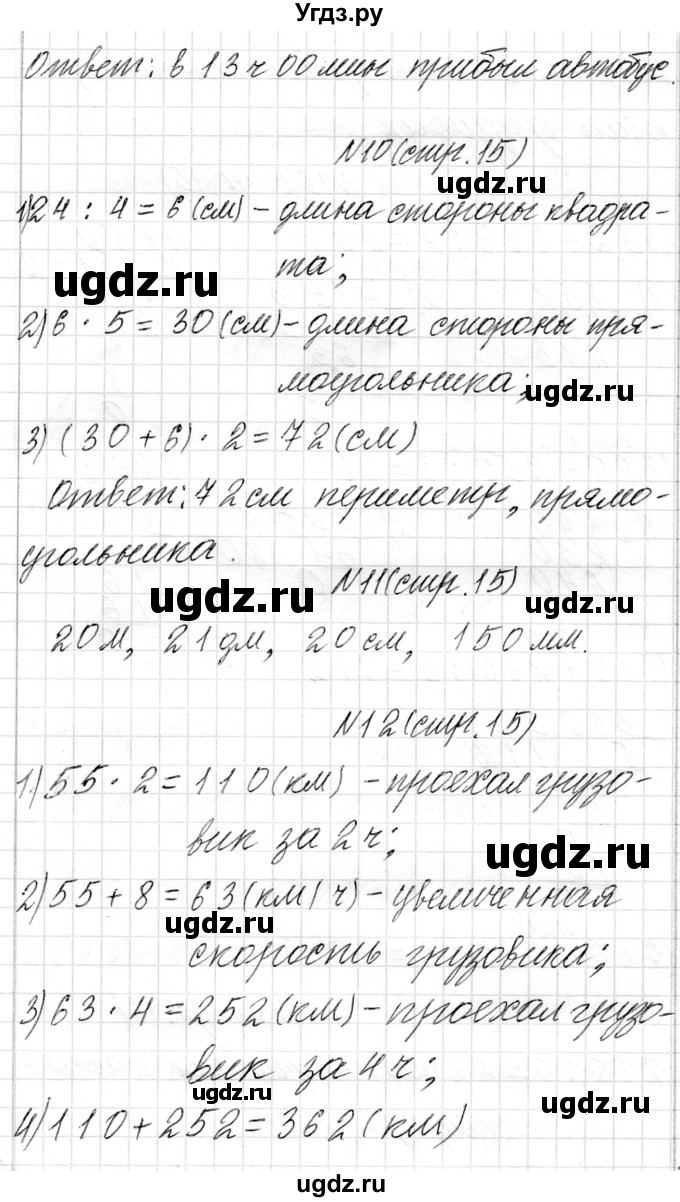 Угдз.ру
Ответ: в 13 ч 00 мин прибыл автобус.
N10(стр.15)
ugdz.ru
1)24 : 4 = 6 (см) - длина стороны квадра-
та;
ugdz.ru
2) 6 · 5 = 30 (см) - длина стороны пря-
моугольника;
ugdz.ru
3) (30 + 6) · 2 = 72 (см)
Ответ: 72 см периметр, прямо-
угольника.
N11(стр.15)
ugdz.ru
ugdz.ru
20 м, 21 дм, 20 см, 150 мм.
N12(стр.15)
1) 55 · 2 = 110 (км) - проехал грузо-
вик за 2 ч;
ugdz.ru
2) 55 + 8 = 63 (км/ч) - увеличенная
ugdz.ru
скорость грузовика;
3) 63 · 4 = 252 (км) - проехал грузо-
вик за 4 ч;
ugdz.ru
ugdz.ru
4) 110 + 252 = 362 (км)
ugdz.ru